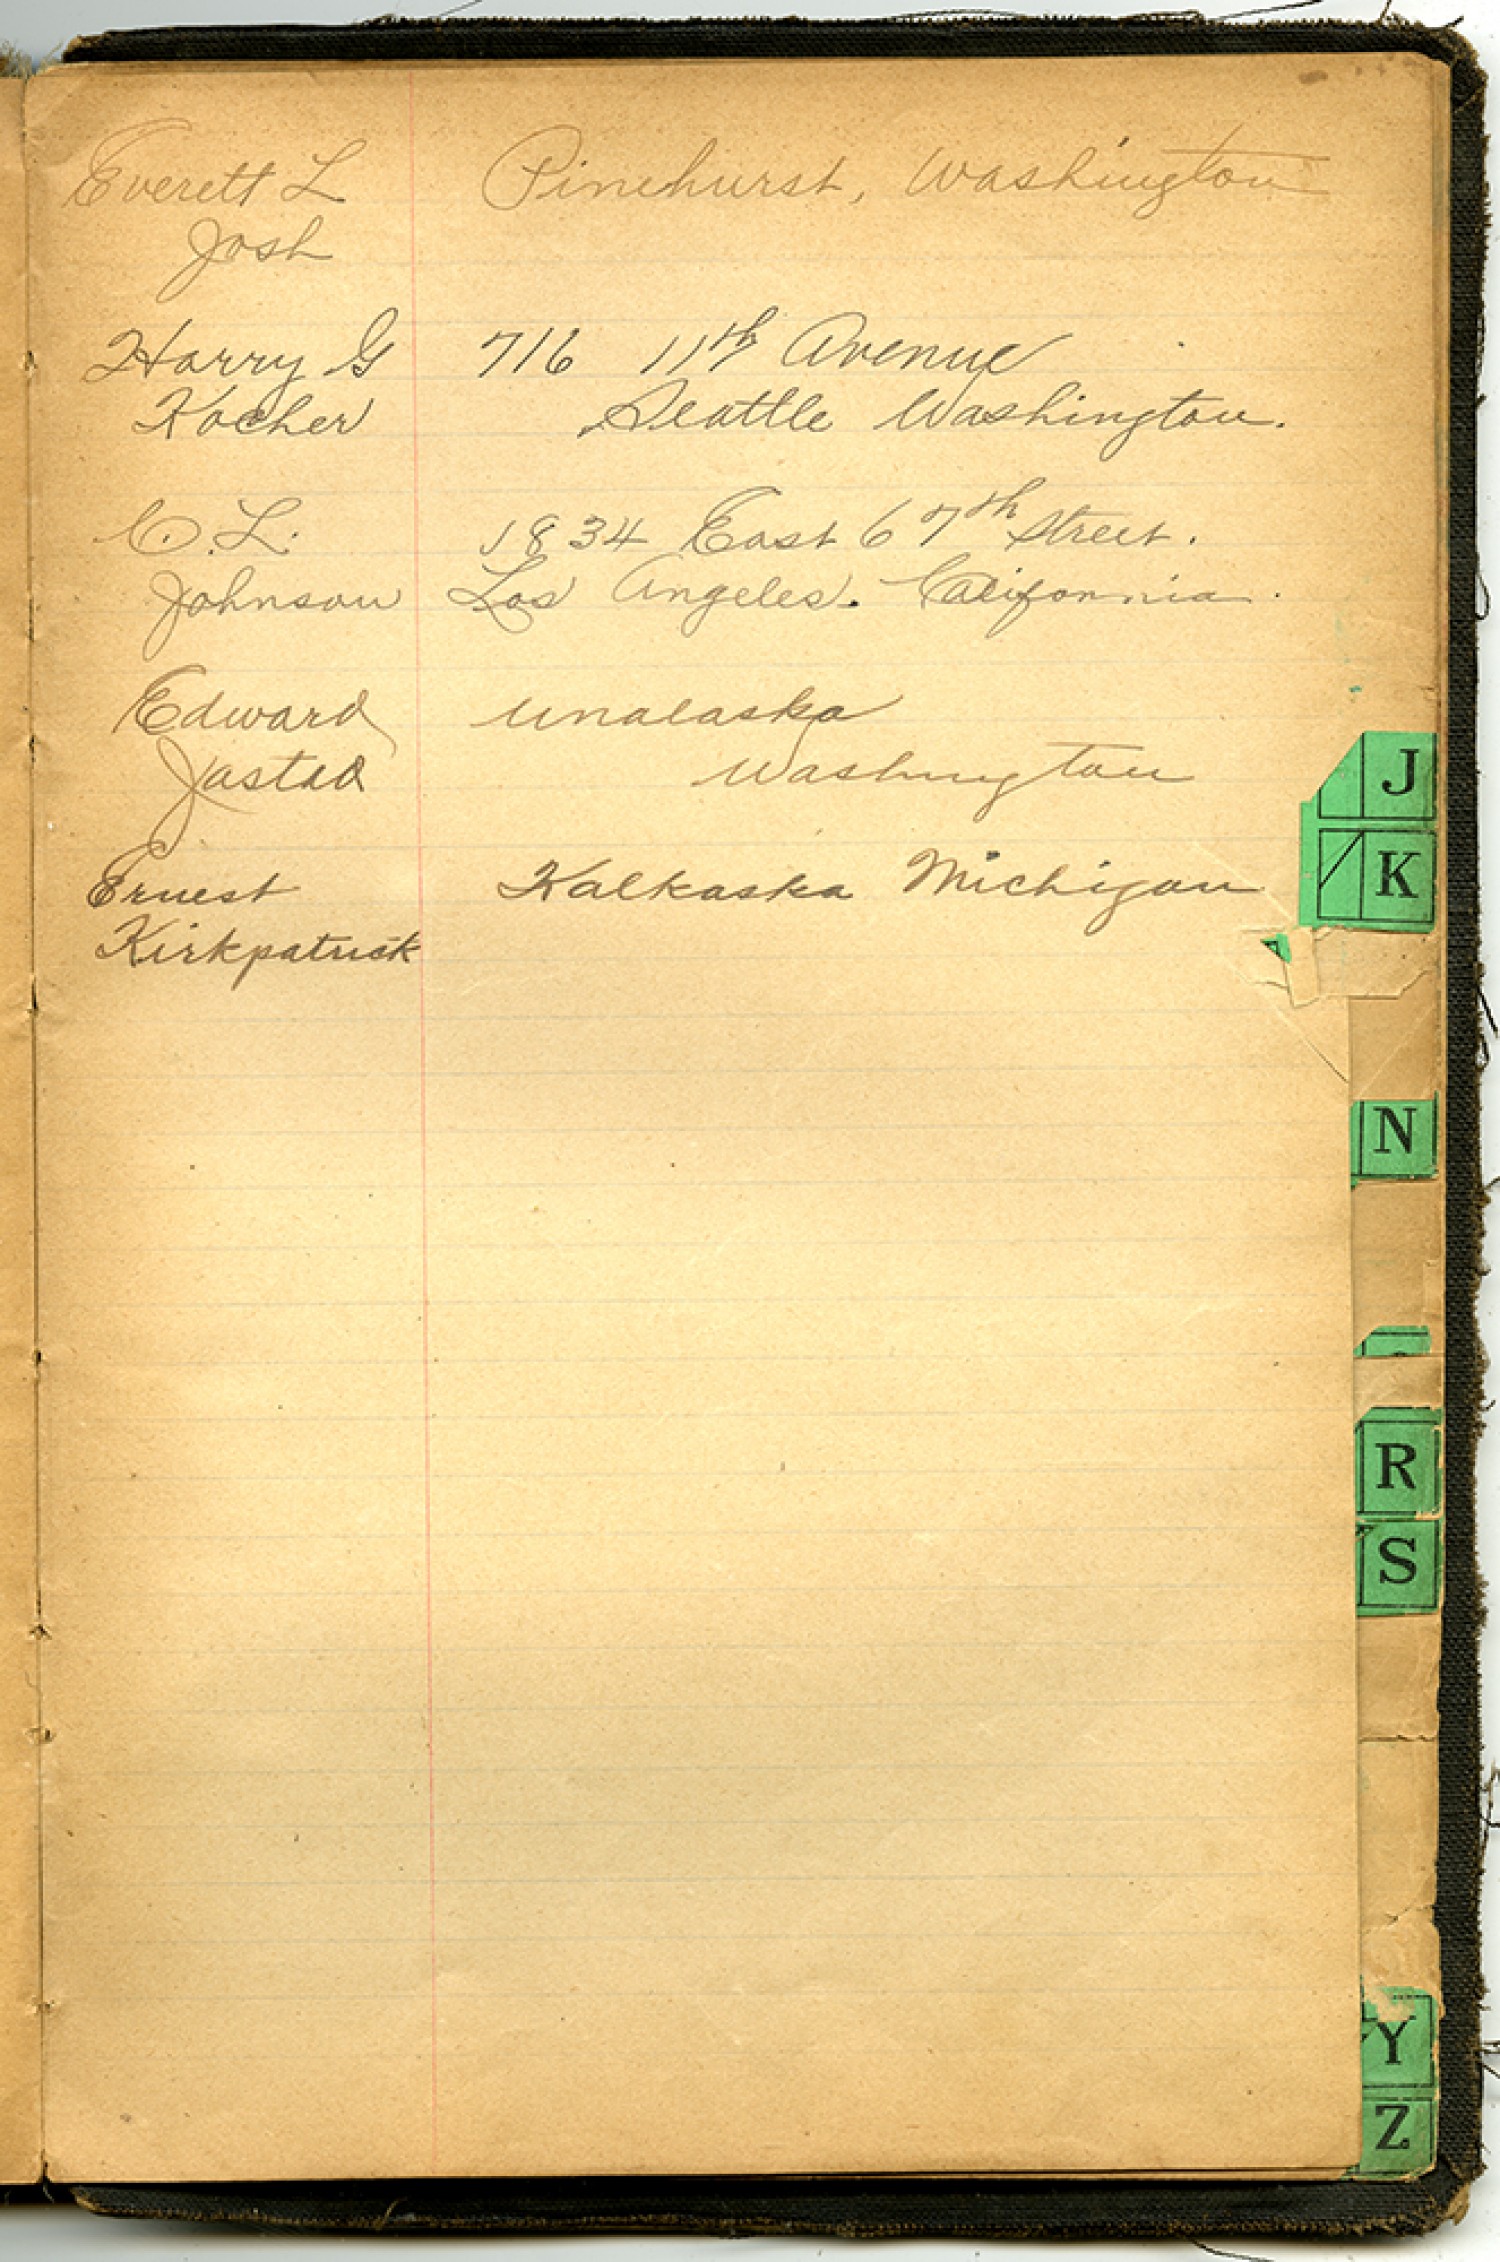 Everett L Pinehurst, Washington
Josh
Harry G 716 11th Avenue
Kocher Seattle Washington.
C. L. 1834 East 67th Street.
Johnson Los Angeles. California.
Edward Unalaska
Jastad Washington
Ernest Kalkaska Michigan
Kirkpatrick
J
K
N
R
S
Y
Z